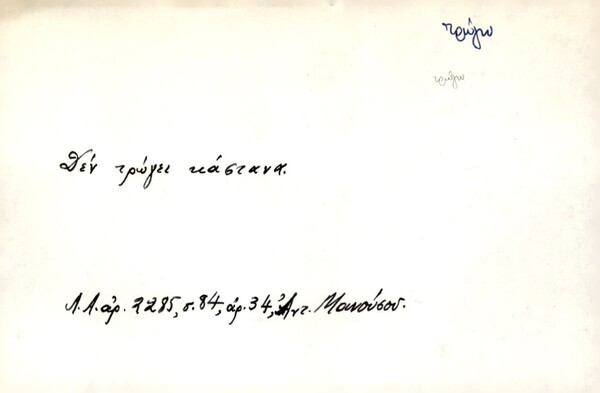 τρώγω
τρώγω
Δέν τρώγει κάστανα.
Λ.Λ. ἀρ. 2285, σ. 84, ἀρ. 34, Ἀντ. Μανούσου.